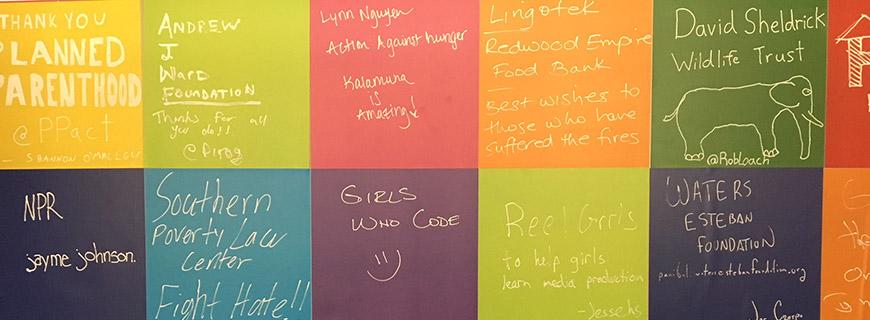 THANK YOU
PLANNED
PARENTHOOD
@PPact
- SHANNON O'MALLEY
ANDREW
J
WARD
FOUNDATION
Thanks for all
you do!!
@pirog
Lynn Nguyen
Action Against hunger
Kalamuna
is
Amazing!
Lingotek
Redwood Empire
Food Bank
Best wishes to
those who have
suffered the fires
David Sheldrick
Wildlife Trust
@RobLoach
NPR
jayme johnson.
Southern
Poverty Law
Center
Fight Hate!!
GIRLS
WHO CODE
Reel Grrls
to help girls
learn media production
-Jessehs
WATERS
ESTEBAN
FOUNDATION